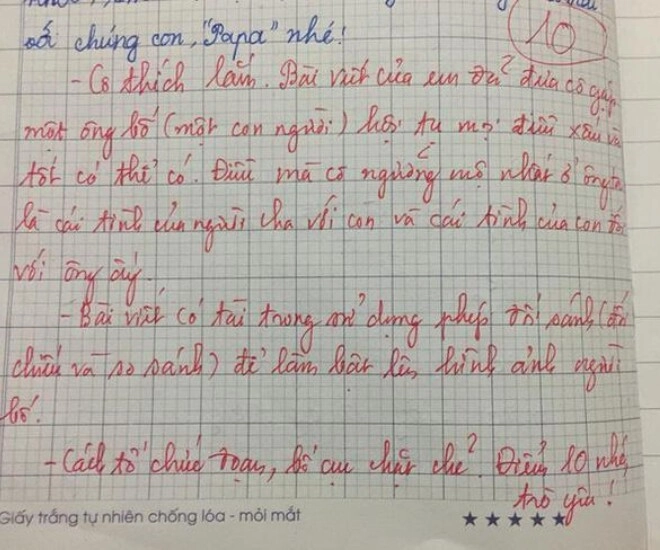 với chúng con, "Papa" nhé!
10
- Cô thích lắm. Bài viết của em đã đưa cô gặp
một ông bố (một con người) hội tụ mọi điều xấu và
tốt có thể có. Điều mà cô ngưỡng mộ nhất ở ông ta
là cái tình của người cha với con và cái tình của con
với ông ấy.
- Bài viết có tài trong sử dụng phép đối sánh (đối
chiếu và so sánh) để làm bật lên hình ảnh người
bố.
- Cách tổ chức đoạn, bố cục chặt chẽ. Điểm 10 nhé
trò yêu!
Giấy trắng tự nhiên chống lóa - mỏi mắt